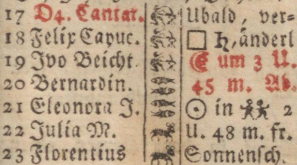 17 D4. Cantat. Ubald, ver-
18 Felix Capuc. □ ♄, änderl
19 Ivo Beicht. ☾ um 3 U.
20 Bernardin. 45 m. Ab.
21 Eleonora J. ☉ in ♊ 2
22 Julia M. U. 48 m. fr.
23 Florentius Sonnensch.